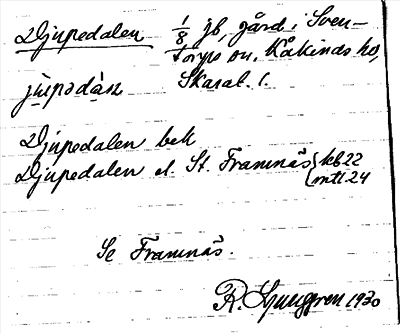 Djupedalen 1/8 jb, gård i Sven-
torps sn, Kåkinds hd,
jùpədàn Skarab. l.
Djupedalen bek
Djupedalen el. St. Framnäs { kb 22
mtl 24
Se Framnäs.
R. Ljunggren 1930